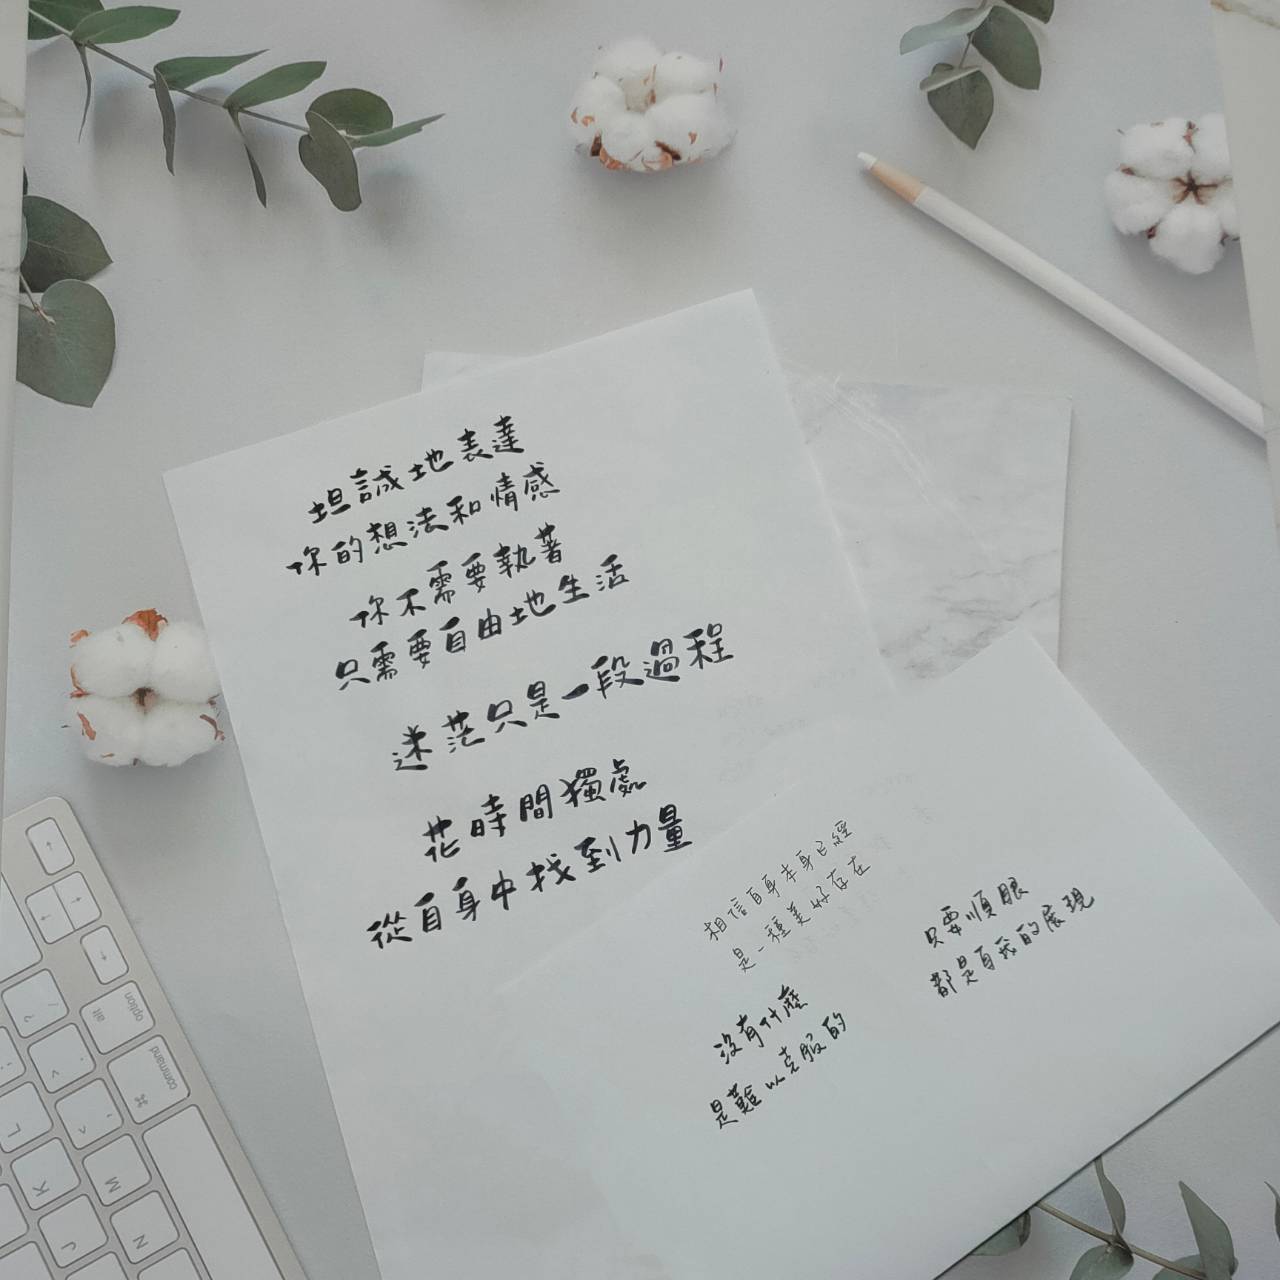 坦誠地表達
你的想法和情感
你不需要執著
只需要自由地生活
迷茫只是一段過程
花時間獨處
從自身中找到力量
相信自身本身已經
是一種美好存在
沒有什麼
是難以克服的
只要順眼
都是自我的展現
option
alt
command
⌘
?
/
K
M
J
N
L